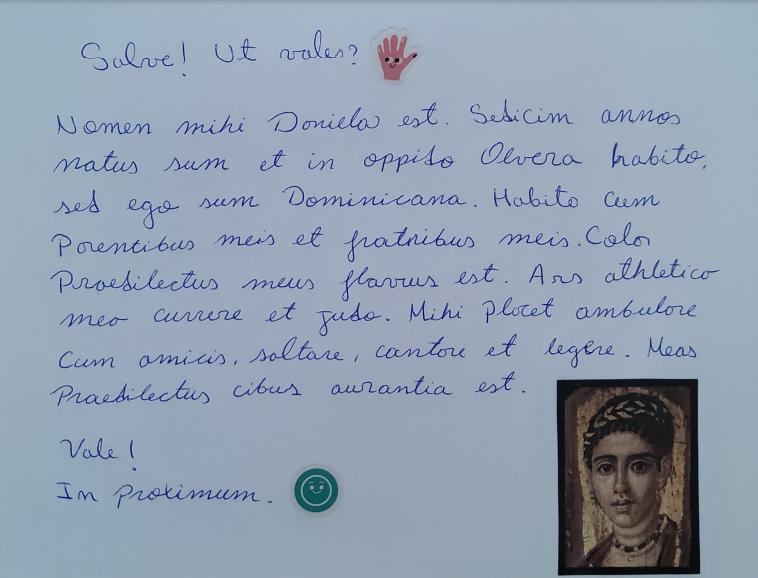 Salve! Ut vales?
Nomen mihi Daniela est. Sedicim annos
natus sum et in oppido Olvera habito,
sed ego sum Dominicana. Habito cum
Parentibus meis et fratribus meis. Color
Praedilectus meus flavus est. Ars athletica
mea currere et judo. Mihi placet ambulare
cum amicis, saltare, cantare et legere. Meas
Praedilectus cibus aurantia est.
Vale!
In proximum.